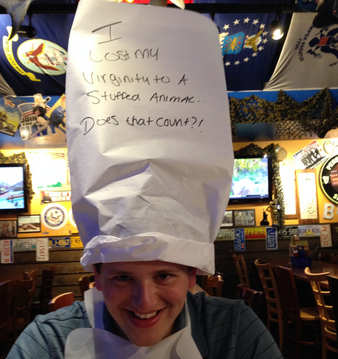 I
Lost my
Virginity to A
Stuffed Animal..
Does that count?!